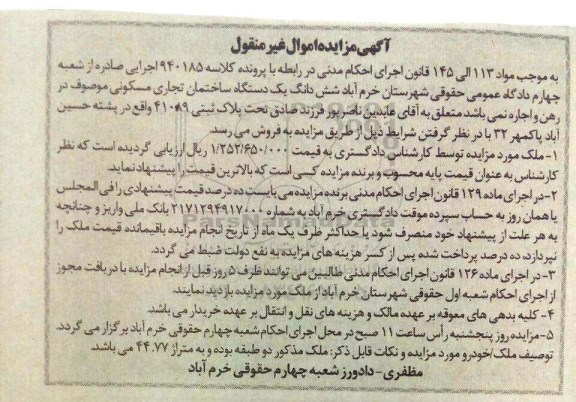 آگهی مزایده اموال غیر منقول
به موجب مواد ۱۱۳ الی ۱۴۵ قانون اجرای احکام مدنی در رابطه با پرونده کلاسه ۹۴۰۱۸۵ اجرایی صادره از شعبه
چهارم دادگاه عمومی حقوقی شهرستان خرم آباد شش دانگ یک دستگاه ساختمان تجاری مسکونی موصوف در
رهن و اجاره نمی باشد متعلق به آقای عابدین ناصرپور فرزند صادق تحت پلاک ثبتی ۴۱۰۸۹ واقع در پشته حسین
آباد پاکمهر ۳۲ با در نظر گرفتن شرایط ذیل از طریق مزایده به فروش می رسد.
۱- ملک مورد مزایده توسط کارشناس دادگستری به قیمت ۱/۲۵۲/۶۵۰/۰۰۰ ریال ارزیابی گردیده است که نظر
کارشناس به عنوان قیمت پایه محسوب و برنده مزایده کسی است که بالاترین قیمت را پیشنهاد نماید.
۲- در اجرای ماده ۱۲۹ قانون اجرای احکام مدنی برنده مزایده می بایست ده درصد قیمت پیشنهادی را فی المجلس
یا همان روز به حساب سپرده موقت دادگستری خرم آباد به شماره ۲۱۷۱۲۹۴۹۱۷۰۰۰ بانک ملی واریز و چنانچه
به هر علت از پیشنهاد خود منصرف شود یا حداکثر ظرف یک ماه از تاریخ انجام مزایده باقیمانده قیمت ملک را
نپردازد، ده درصد پرداخت شده پس از کسر هزینه های مزایده به نفع دولت ضبط می گردد.
۳- در اجرای ماده ۱۲۶ قانون اجرای احکام مدنی طالبین می توانند ظرف ۵ روز قبل از انجام مزایده با دریافت مجوز
از اجرای احکام شعبه اول حقوقی شهرستان خرم آباد از ملک مورد مزایده بازدید نمایند.
۴- کلیه بدهی های معوقه بر عهده مالک و هزینه های نقل و انتقال بر عهده خریدار می باشد.
۵- مزایده روز پنجشنبه رأس ساعت ۱۱ صبح در محل اجرای احکام شعبه چهارم حقوقی خرم آباد برگزار می گردد.
توصیف ملک/خودرو مورد مزایده و نکات قابل ذکر: ملک مذکور دو طبقه بوده و به متراژ ۴۴.۷۷ می باشد.
مظفری- دادورز شعبه چهارم حقوقی خرم آباد